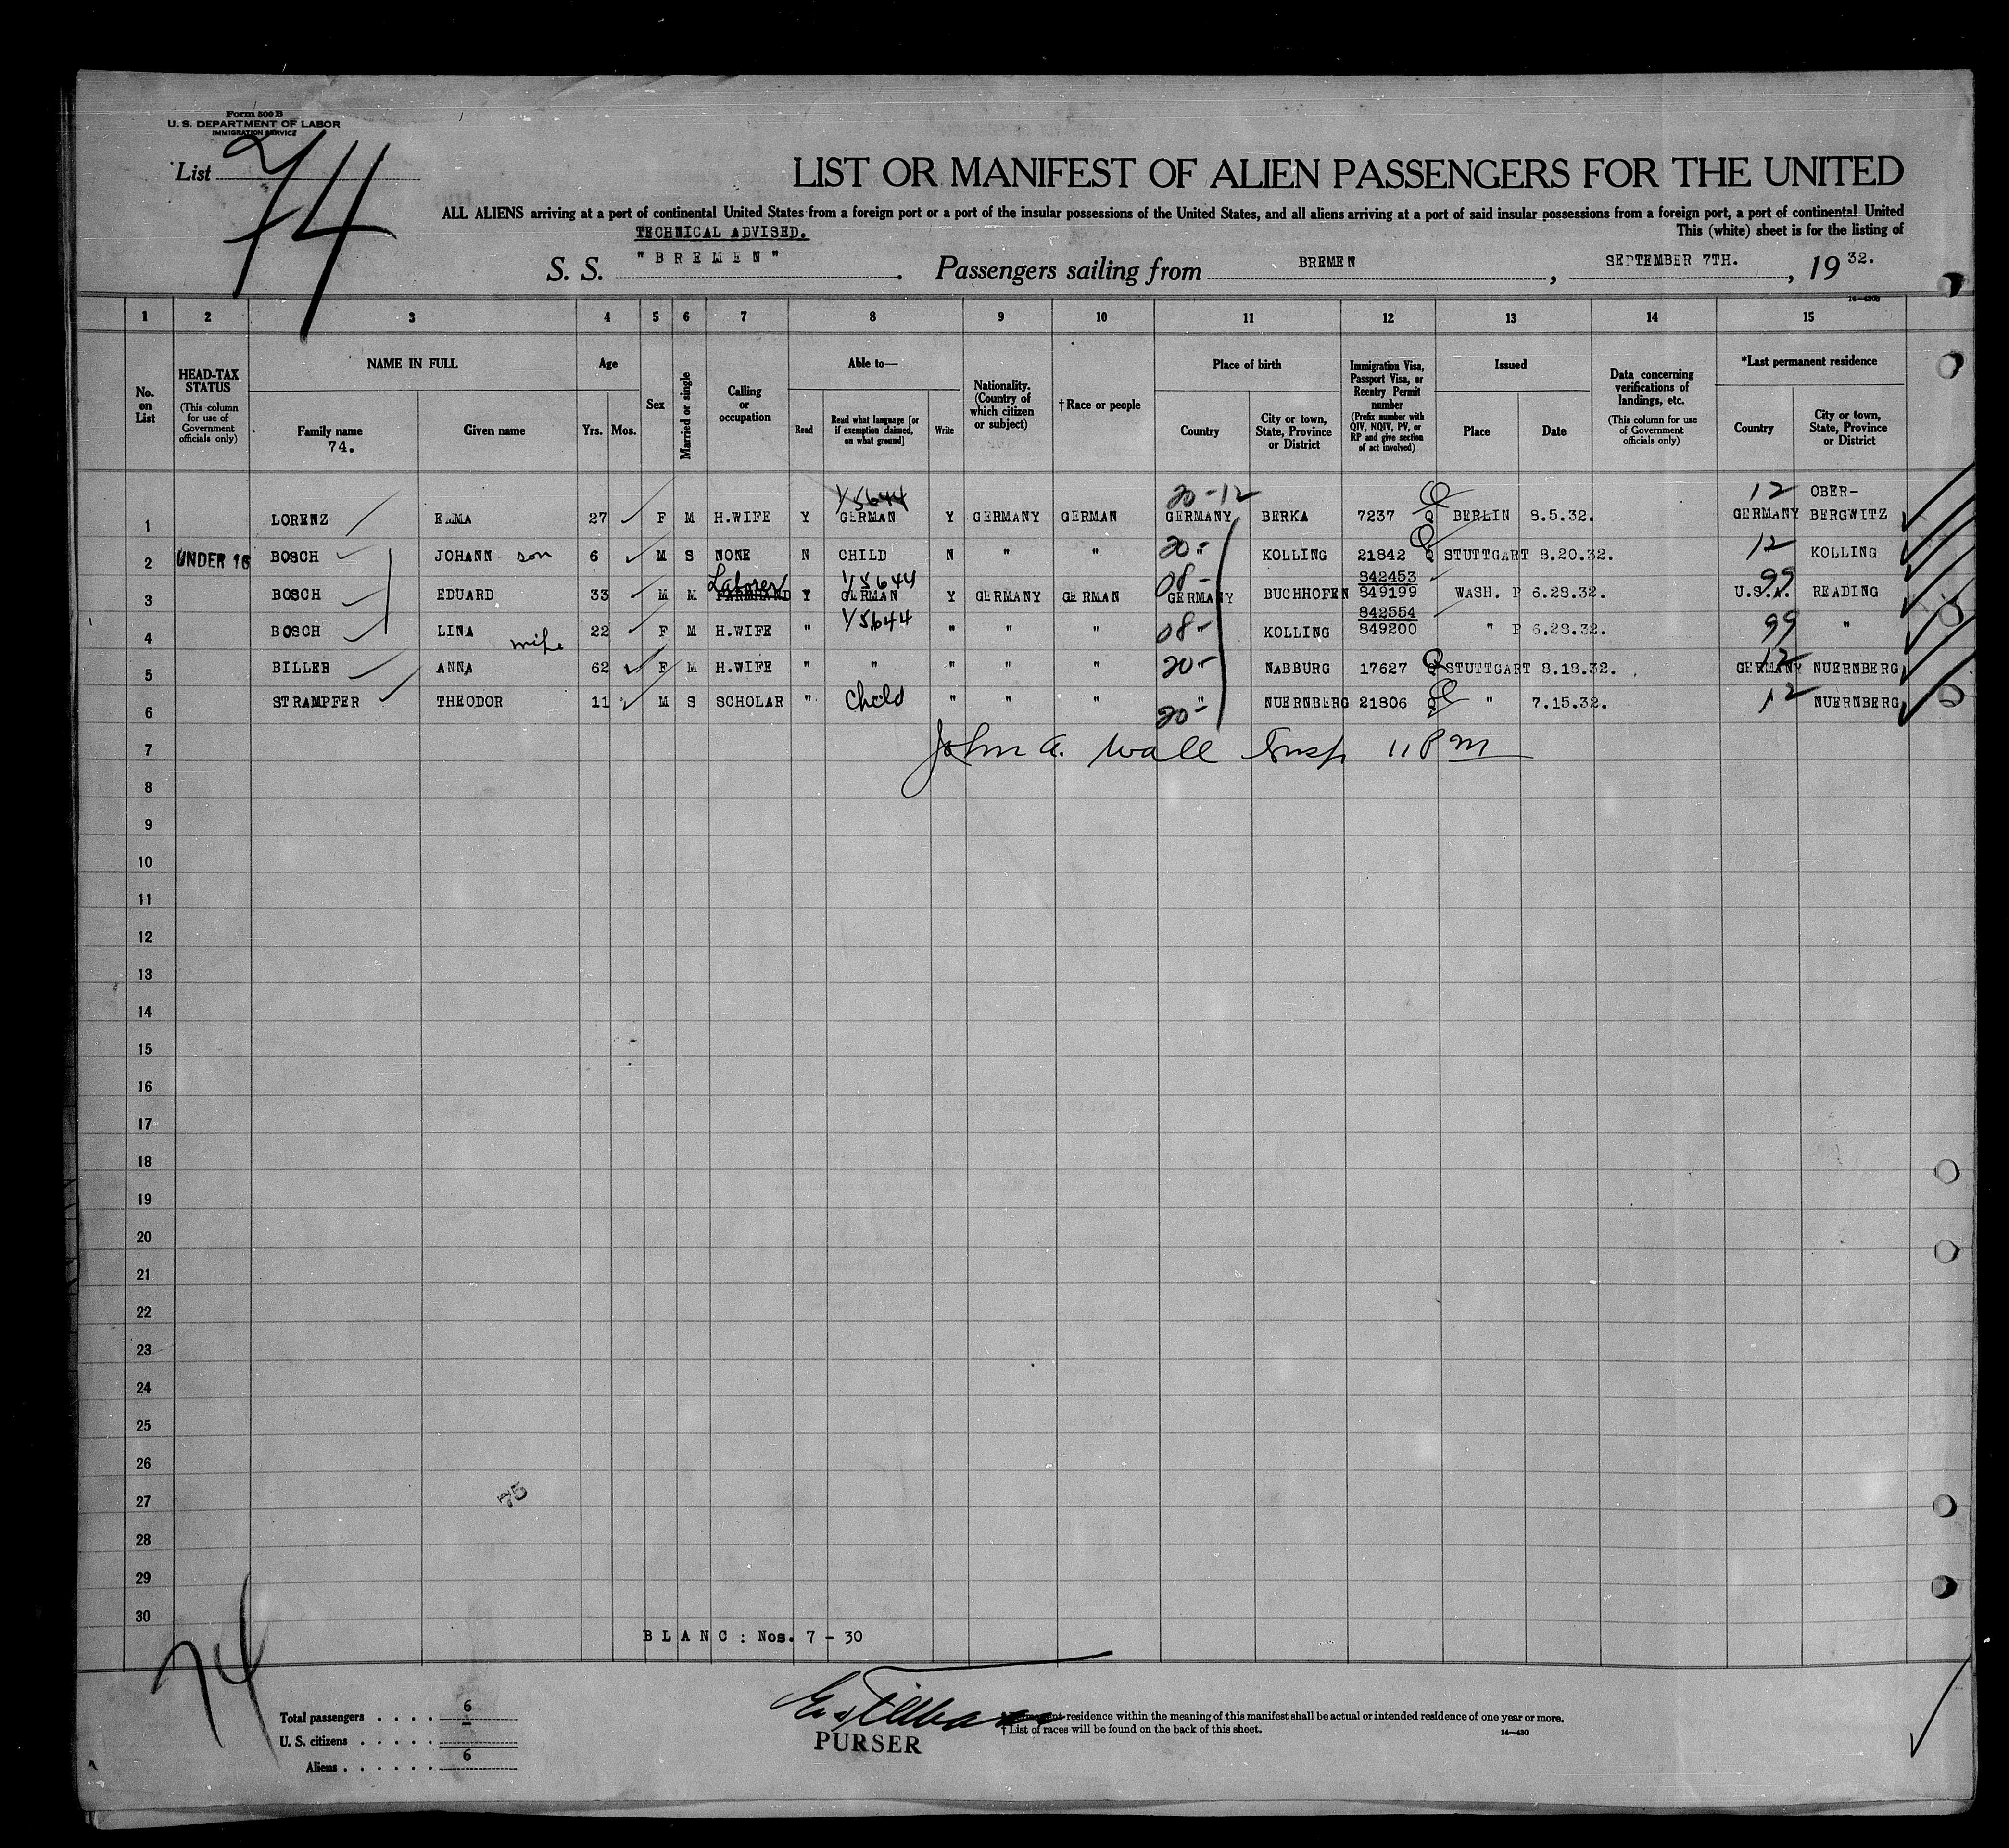 Form 500 B
U. S. DEPARTMENT OF LABOR
IMMIGRATION SERVICE
List 74
LIST OR MANIFEST OF ALIEN PASSENGERS FOR THE UNITED
ALL ALIENS arriving at a port of continental United States from a foreign port or a port of the insular possessions of the United States, and all aliens arriving at a port of said insular possessions from a foreign port, a port of continental United
TECHNICAL ADVISED.
This (white) sheet is for the listing of
S. S. "BREMEN". Passengers sailing from BREMEN, SEPTEMBER 7TH., 19 32.
14-430b
1 2 3 4 5 6 7 8 9 10 11 12 13 14 15
No. on List
HEAD-TAX STATUS
(This column for use of Government officials only)
NAME IN FULL
Family name
74.
Given name
Age
Yrs. Mos.
Sex
Married or single
Calling or occupation
Able to—
Read
Read what language [or if exemption claimed, on what ground]
Write
Nationality. (Country of which citizen or subject)
† Race or people
Place of birth
Country
City or town, State, Province or District
Immigration Visa, Passport Visa, or Reentry Permit number
(Prefix number with QIV, NQIV, PV, or RP and give section of act involved)
Issued
Place
Date
Data concerning verifications of landings, etc.
(This column for use of Government officials only)
*Last permanent residence
Country
City or town, State, Province or District
15644 20-12 12 OBER-
1 LORENZ EMMA 27 F M H.WIFE Y GERMAN Y GERMANY GERMAN GERMANY BERKA 7237 BERLIN 8.5.32. GERMANY BERGWITZ
2 UNDER 16 BOSCH JOHANN son 6 M S NONE N CHILD N " " 20- " KOLLING 21842 Q STUTTGART 8.20.32. 12 KOLLING
Laborer 15644 08- 842453 99
3 BOSCH EDUARD 33 M M Y GERMAN Y GERMANY GERMAN GERMANY BUCHHOFEN 849199 WASH. P 6.28.32. U.S.A. READING
15644 842554
4 BOSCH LINA wife 22 F M H.WIFE " " " " 08- KOLLING 849200 " P 6.28.32. 99 "
5 BILLER ANNA 62 F M H.WIFE " " " " " 20- " NABBURG 17627 Q STUTTGART 8.18.32. 12 GERMANY NUERNBERG
6 STRAMPFER THEODOR 11 M S SCHOLAR " Child " " " 20- " NUERNBERG 21806 Q " 7.15.32. 12 NUERNBERG
7 John A. Wall Insp 11 PM
8
9
10
11
12
13
14
15
16
17
18
19
20
21
22
23
24
25
26
27 75
28
29
30
BLANC: Nos. 7 - 30
74
Total passengers . . . . 6
U. S. citizens . . . . . –
Aliens . . . . . . 6
PURSER
residence within the meaning of this manifest shall be actual or intended residence of one year or more.
† List of races will be found on the back of this sheet.
14—430